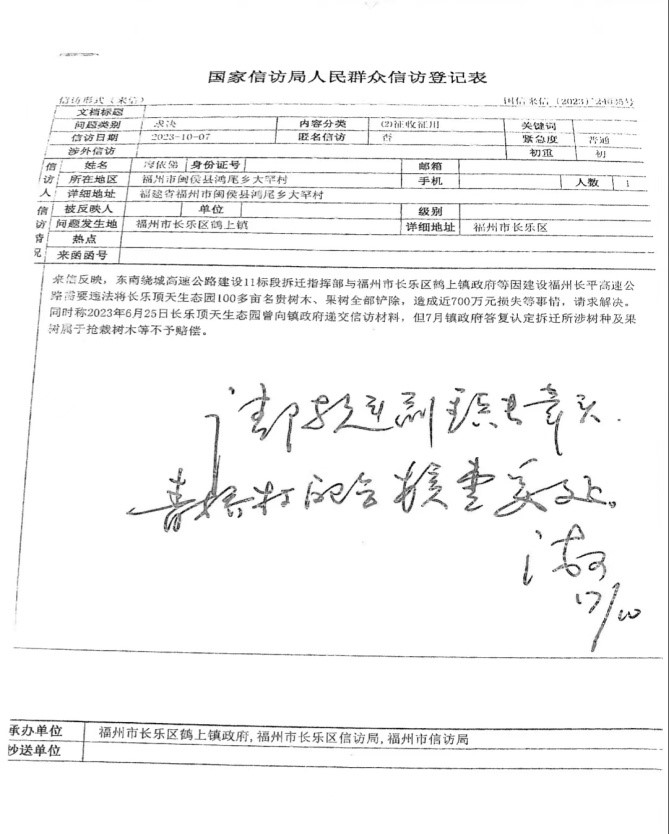 国家信访局人民群众信访登记表
信访形式（来信） 国信来信（2023）
文档标题
问题类别 求决 内容分类 (2)征收征用 关键词
信访日期 2023-10-07 匿名信访 否 紧急度 普通
涉外信访 初重 初
信访人 姓名 身份证号 邮箱
所在地区 福州市闽侯县鸿尾乡大罕村 手机 人数 1
详细地址 福建省福州市闽侯县鸿尾乡大罕村
信访情况 被反映人 单位 级别
问题发生地 福州市长乐区鹤上镇 详细地址 福州市长乐区
热点
来函函号
来信反映，东南绕城高速公路建设11标段拆迁指挥部与福州市长乐区鹤上镇政府等因建设福州长平高速公
路需要违法将长乐顶天生态园100多亩名贵树木、果树全部铲除，造成近700万元损失等事情，请求解决。
同时称2023年6月25日长乐顶天生态园曾向镇政府递交信访材料，但7月镇政府答复认定拆迁所涉树种及果
树属于抢栽树木等不予赔偿。
17/10
承办单位 福州市长乐区鹤上镇政府,福州市长乐区信访局,福州市信访局
抄送单位